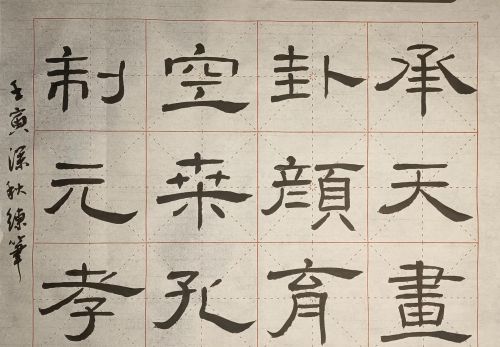 承天畫
卦顏育
空桒孔
制元孝
壬寅深秋練筆